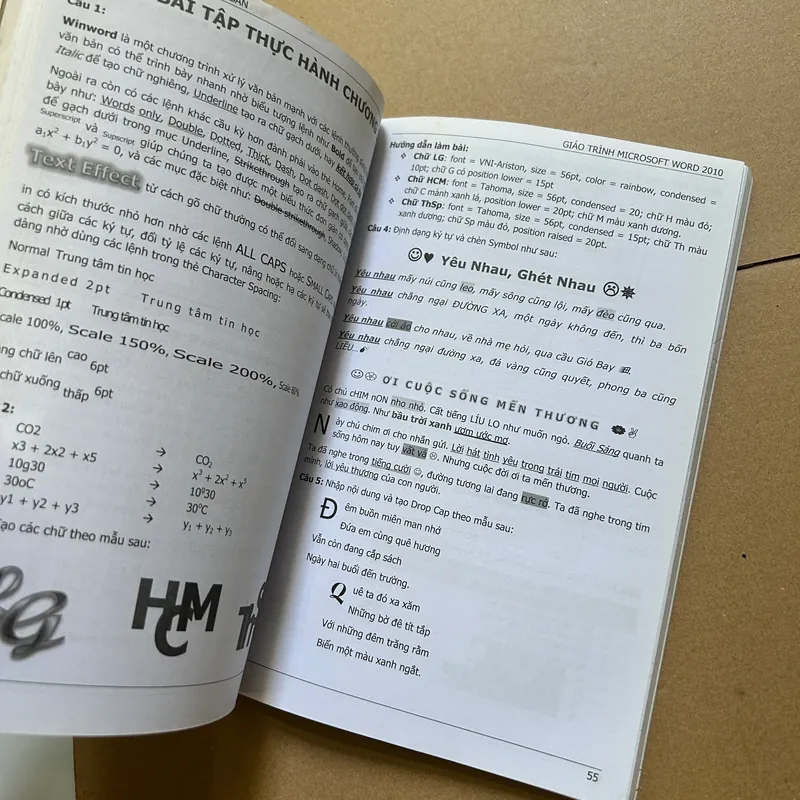 BẢN
BÀI TẬP THỰC HÀNH CHƯƠNG
Câu 1:
Winword là một chương trình xử lý văn bản mạnh với các lệnh thường dùng
văn bản có thể trình bày nhanh nhờ biểu tượng lệnh như Bold để tạo
Italic để tạo chữ nghiêng, Underline tạo ra chữ gạch dưới, hay kết
Ngoài ra còn có các lệnh khác cầu kỳ hơn đành phải vào thẻ Home, Font
bày như: Words only, Double, Dotted, Thick, Dash, Dot dash, Dot dot
để gạch dưới trong mục Underline, Strikethrough tạo ra chữ gạch giữa,
Superscript và Supscript giúp chúng ta tạo được một biểu thức đơn giản
a₁x² + b₁y² = 0, và các mục đặc biệt như: Double strikethrough,
Text Effect, từ cách gõ chữ thường có thể đổi sang dạng chữ
in có kích thước nhỏ hơn nhờ các lệnh ALL CAPS hoặc SMALL
cách giữa các ký tự, đổi tỷ lệ các ký tự, nâng hoặc hạ các ký tự
dàng nhờ dùng các lệnh trong thẻ Character Spacing:
Normal Trung tâm tin học
Expanded 2pt Trung tâm tin học
Condensed 1pt Trung tâm tin học
cale 100%, Scale 150%, Scale 200%, Scale 80%
ng chữ lên cao 6pt
chữ xuống thấp 6pt
2:
CO2 → CO₂
x3 + 2x2 + x5 → x³ + 2x² + x⁵
10g30 → 10ᵍ30
30oC → 30°C
y1 + y2 + y3 → y₁ + y₂ + y₃
ạo các chữ theo mẫu sau:
LG HCM Th
GIÁO TRÌNH MICROSOFT WORD 2010
Hướng dẫn làm bài:
❖ Chữ LG: font = VNI-Ariston, size = 56pt, color = rainbow, condensed =
10pt; chữ G có position lower = 15pt
❖ Chữ HCM: font = Tahoma, size = 56pt, condensed = 20; chữ H màu đỏ;
chữ C mành xanh lá, position lower = 20pt; chữ M màu xanh dương.
❖ Chữ ThSp: font = Tahoma, size = 56pt, condensed = 15pt; chữ Th màu
xanh dương; chữ Sp màu đỏ, position raised = 20pt.
Câu 4: Định dạng ký tự và chèn Symbol như sau:
☺♥ Yêu Nhau, Ghét Nhau ☹✹
Yêu nhau mấy núi cũng leo, mấy sông cũng lội, mấy đèo cũng qua.
Yêu nhau chẳng ngại ĐƯỜNG XA, một ngày không đến, thì ba bốn
ngày.
Yêu nhau cởi áo cho nhau, về nhà mẹ hỏi, qua cầu Gió Bay
Yêu nhau chẳng ngại đường xa, đá vàng cũng quyết, phong ba cũng
LIỀU...💣
☺☹ ƠI CUỘC SỐNG MẾN THƯƠNG ✌
Có chú cHIM nON nho nhỏ. Cất tiếng LÍU LO như muốn ngỏ. Buổi Sáng quanh ta
như xao động. Như bầu trời xanh ươm ước mơ.
Này chú chim ơi cho nhắn gửi. Lời hát tình yêu trong trái tim mọi người. Cuộc
sống hôm nay tuy vất vả ☹. Nhưng cuộc đời ơi ta mến thương.
Ta đã nghe trong tiếng cười ☺, đường tương lai đang rực rỡ. Ta đã nghe trong tim
mình, lời yêu thương của con người.
Câu 5: Nhập nội dung và tạo Drop Cap theo mẫu sau:
Đêm buồn miên man nhớ
Đứa em cùng quê hương
Vẫn còn đang cắp sách
Ngày hai buổi đến trường.
Quê ta đó xa xăm
Những bờ đê tít tắp
Với những đêm trăng rằm
Biển một màu xanh ngắt.
55